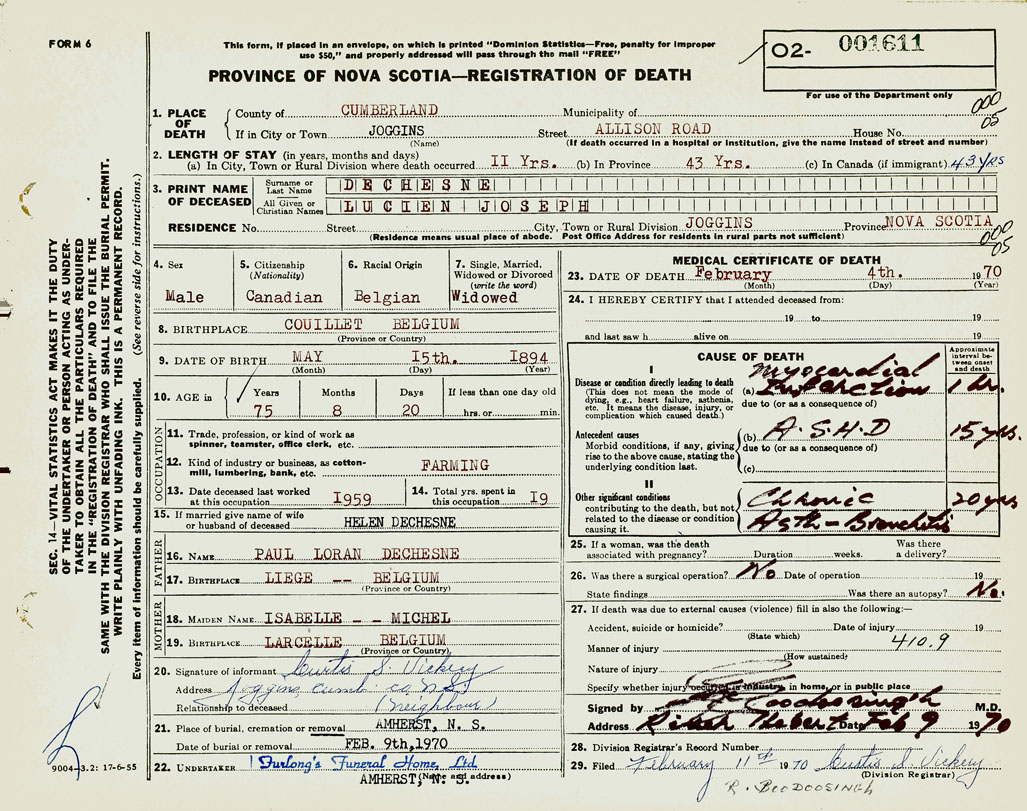 FORM 6
This form, if placed in an envelope, on which is printed "Dominion Statistics—Free, penalty for improper
use $50," and properly addressed will pass through the mail "FREE"
PROVINCE OF NOVA SCOTIA—REGISTRATION OF DEATH
02- 001611
For use of the Department only
000
05
1. PLACE OF DEATH
County of CUMBERLAND Municipality of
If in City or Town JOGGINS Street ALLISON ROAD House No.
(Name) (If death occurred in a hospital or institution, give the name instead of street and number)
2. LENGTH OF STAY (in years, months and days)
(a) In City, Town or Rural Division where death occurred II Yrs. (b) In Province 43 Yrs. (c) In Canada (if immigrant) 43 yrs
3. PRINT NAME OF DECEASED
Surname or Last Name DECHESNE
All Given or Christian Names LUCIEN JOSEPH
RESIDENCE No. Street City, Town or Rural Division JOGGINS Province NOVA SCOTIA
(Residence means usual place of abode. Post Office Address for residents in rural parts not sufficient)
000
05
4. Sex
Male
5. Citizenship
(Nationality)
Canadian
6. Racial Origin
Belgian
7. Single, Married,
Widowed or Divorced
(write the word)
Widowed
8. BIRTHPLACE COUILLET BELGIUM
(Province or Country)
9. DATE OF BIRTH MAY I5th. I894
(Month) (Day) (Year)
10. AGE in Years Months Days If less than one day old
75 8 20 hrs. or min.
OCCUPATION
11. Trade, profession, or kind of work as
spinner, teamster, office clerk, etc.
12. Kind of industry or business, as cotton-
mill, lumbering, bank, etc. FARMING
13. Date deceased last worked
at this occupation I959
14. Total yrs. spent in
this occupation I9
15. If married give name of wife
or husband of deceased HELEN DECHESNE
FATHER
16. NAME PAUL LORAN DECHESNE
17. BIRTHPLACE LIEGE -- BELGIUM
(Province or Country)
MOTHER
18. MAIDEN NAME ISABELLE -- MICHEL
19. BIRTHPLACE LARCELLE BELGIUM
(Province or Country)
20. Signature of informant Curtis S. Vickery
Address Joggins Cumb co. N.S.
Relationship to deceased (neighbour)
21. Place of burial, cremation or removal AMHERST, N. S.
Date of burial or removal FEB. 9th, 1970
22. UNDERTAKER Furlong's Funeral Home, Ltd.
AMHERST, N. S.
(Name and address)
MEDICAL CERTIFICATE OF DEATH
23. DATE OF DEATH February 4th. 1970
(Month) (Day) (Year)
24. I HEREBY CERTIFY that I attended deceased from:
19 to 19
and last saw h alive on 19
CAUSE OF DEATH
Approximate
interval be-
tween onset
and death
I
Disease or condition directly leading to death
(This does not mean the mode of
dying, e.g., heart failure, asthenia,
etc. It means the disease, injury, or
complication which caused death.)
(a) Myocardial
Infarction 1 hr.
due to (or as a consequence of)
Antecedent causes
Morbid conditions, if any, giving
rise to the above cause, stating the
underlying condition last.
(b) A.S.H.D 15 yrs.
due to (or as a consequence of)
(c)
II
Other significant conditions
contributing to the death, but not
related to the disease or condition
causing it.
Chronic 20 yrs
Asth-Bronchitis
25. If a woman, was the death
associated with pregnancy? Duration weeks. Was there
a delivery?
26. Was there a surgical operation? No Date of operation 19
State findings Was there an autopsy? No.
27. If death was due to external causes (violence) fill in also the following:—
Accident, suicide or homicide? Date of injury 19
(State which)
410.9
Manner of injury
(How sustained)
Nature of injury
Specify whether injury occurred in industry, in home, or in public place
Signed by Boodoosingh M.D.
Address Date Feb 9 1970
28. Division Registrar's Record Number
29. Filed February 11th 1970 Curtis S. Vickery
(Division Registrar)
R. BOODOOSINGH
SEC. 14—VITAL STATISTICS ACT MAKES IT THE DUTY
OF THE UNDERTAKER OR PERSON ACTING AS UNDER-
TAKER TO OBTAIN ALL THE PARTICULARS REQUIRED
IN THE "REGISTRATION OF DEATH" AND TO FILE THE
SAME WITH THE DIVISION REGISTRAR WHO SHALL ISSUE THE BURIAL PERMIT.
WRITE PLAINLY WITH UNFADING INK. THIS IS A PERMANENT RECORD.
Every item of information should be carefully supplied. (See reverse side for instructions.)
9004-3.2: 17-6-55